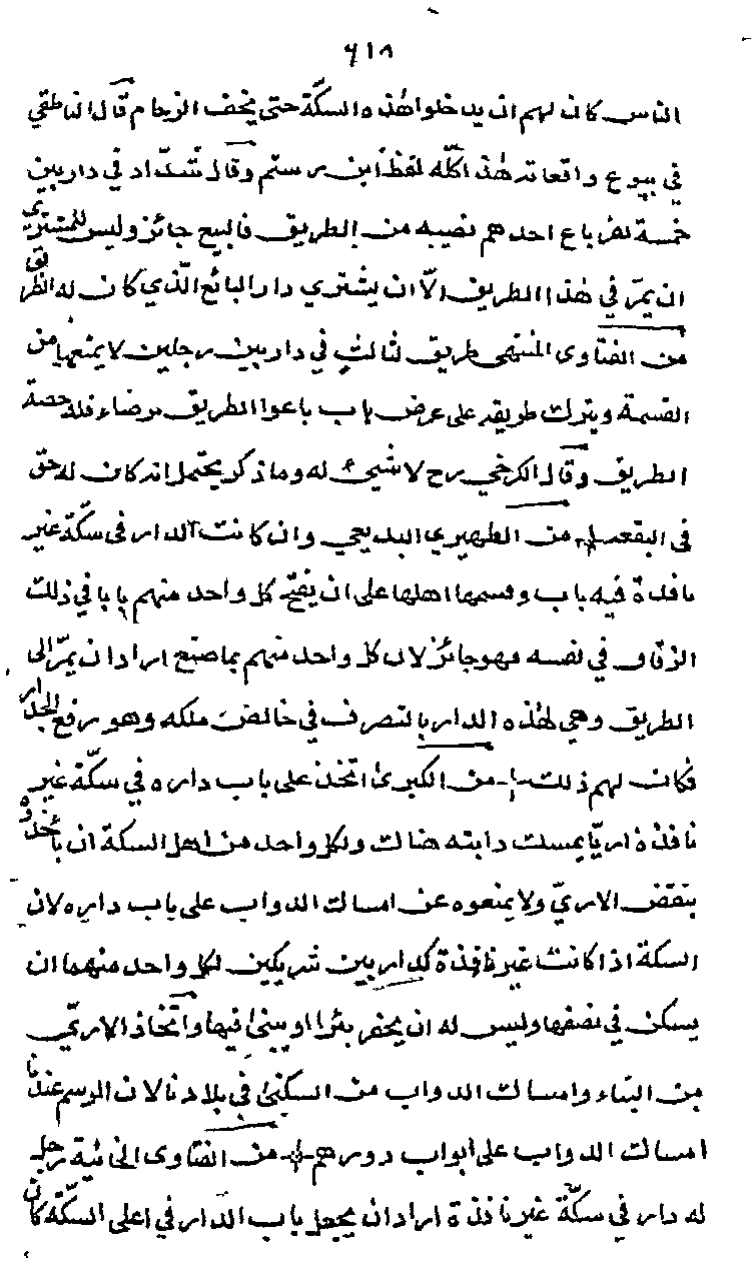 ٦١٨
الناس كان لهم ان يدخلوا هذه السكة حتى يخف الزحام قال الناطقي
في بيوع واقعاته هذا كله لفظ ابن رستم وقال شداد في دار بين
خمسة نفر باع احدهم نصيبه من الطريق فالبيع جائز وليس للمشتري
ان يمرّ في هذا الطريق الّا ان يشتري دار البائع الّذي كان له الطريق
من الفتاوى المنتهى طريق لثالث في دار بين رجلين لا يمنعهما من
القسمة ويترك طريقه على عرض باب باعوا الطريق برضاء فله حصة
الطريق وقال الكرخي رح لا شيئ له وما ذكر يحتمل انه كان له حق
في البقعة من الظهيري البديعي وان كانت الدار في سكّة غير
نافذة فيه باب وقسمها اهلها على ان يفتح كل واحد منهم بابا في ذلك
الزقاق في نفسه فهو جائز لان كل واحد منهم بما صنع اراد ان يمرّ الى
الطريق وهي لهذه الدار بالتصرف في خالص ملكه وهو رفع الجدار
فكان لهم ذلك من الكبرى اتّخذ على باب داره في سكّة غير
نافذة اريّا يمسك دابته هناك ولكل واحد من اهل السكة ان يأخذوه
بنقض الاريّ ولا يمنعوه عن امساك الدواب على باب داره لان
السكة اذا كانت غير نافذة كدار بين شريكين لكل واحد منهما ان
يسكن في نصفها وليس له ان يحفر بئرا او يبنى فيها واتّخاذ الاريّ
من البناء وامساك الدواب من السكنى في بلادنا لان الرسم عندنا
امساك الدواب على ابواب دورهم من الفتاوى الخانية رجل
له دار في سكّة غير نافذة اراد ان يجعل باب الدار في اعلى السكّة كان